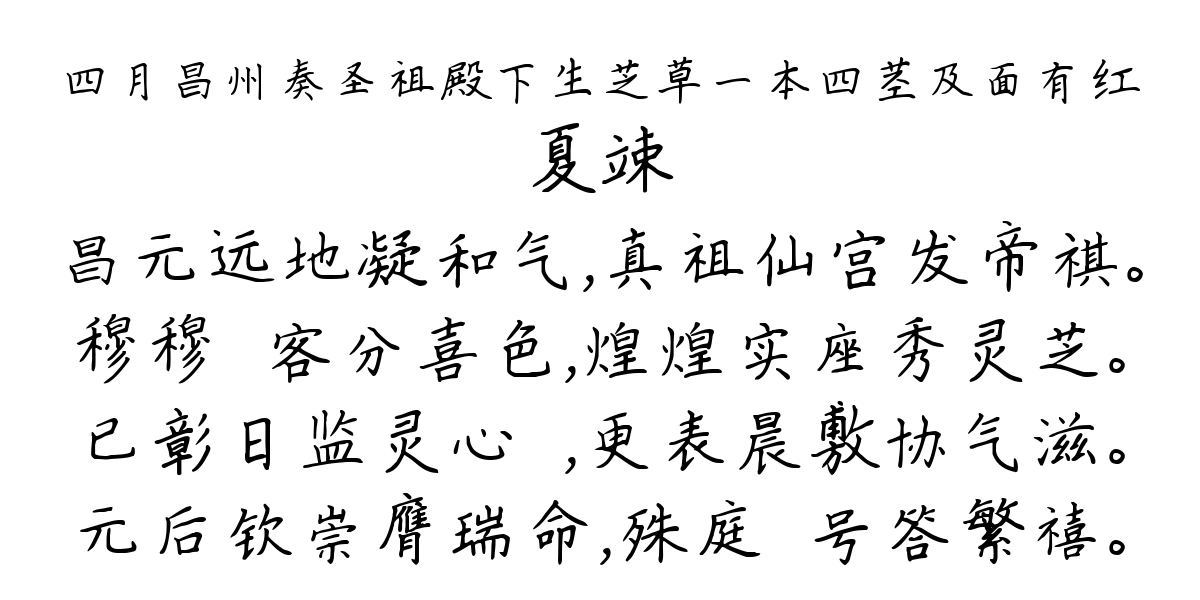 四月昌州奏圣祖殿下生芝草一本四茎及面有红
夏竦
昌元远地凝和气,真祖仙宫发帝祺。
穆穆 客分喜色,煌煌实座秀灵芝。
已彰日监灵心 ,更表晨敷协气滋。
元后钦崇膺瑞命,殊庭 号答繁禧。